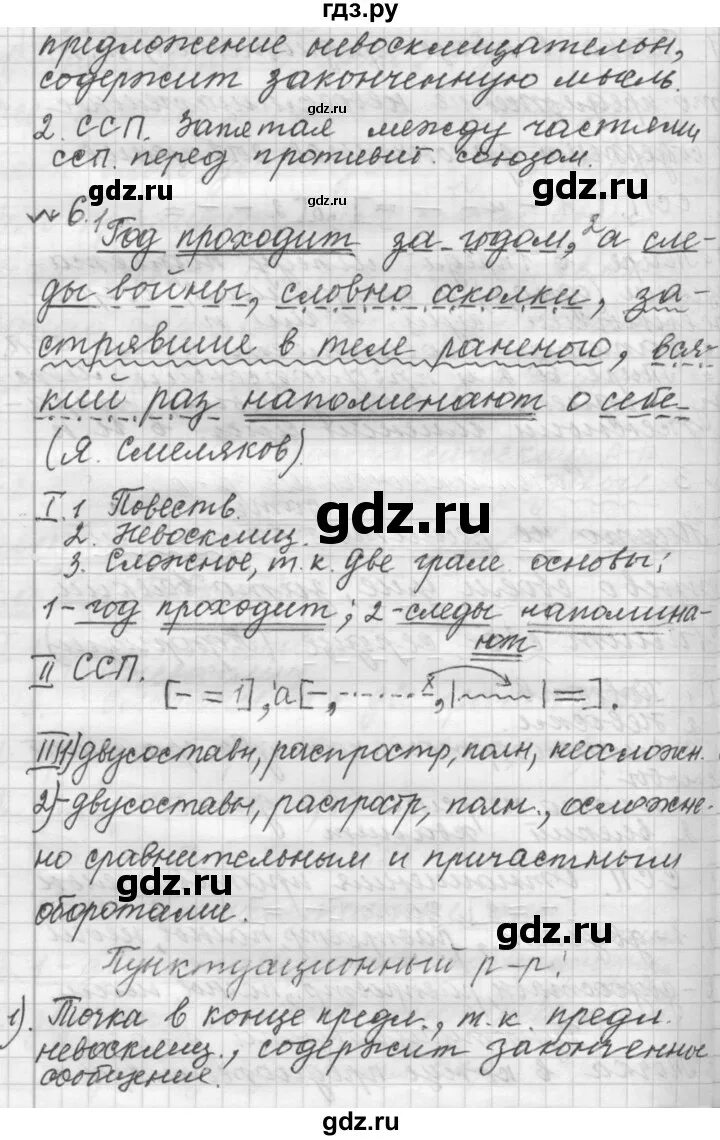 гдз.ру
предложение невосклицательн,
содержит законченную мысль.
gdz.ru
gdz.ru
2. ССП. Запятая между частями
ССП. перед противит. союзом.
gdz.ru
gdz.ru
№ 6.
1 Год проходит за годом, 2 а сле-
ды войны, словно осколки, за-
стрявшие в теле раненого, вся-
кий раз напоминают о себе
gdz.ru
(Я. Смеляков).
gdz.ru
I. 1 Повеств.
gdz.ru
2. Невосклиц.
3. Сложное, т.к. две грам. основы:
1 - год проходит; 2 - следы напомина-
ют
II ССП. [- = 1], а [-, ......., |~~~| =].
gdz.ru
III 1) двусоставн, распростр, полн, неосложн.
2) - двусоставн, распростр, полн., осложне-
но сравнительным и причастным
gdz.ru
оборотами.
gdz.ru
Пунктуационный р-р:
gdz.ru
1). Точка в конце предл., т.к. предл.
невосклиц., содержит законченны
gdz.ru
сообщение.
gdz.ru
gdz.ru